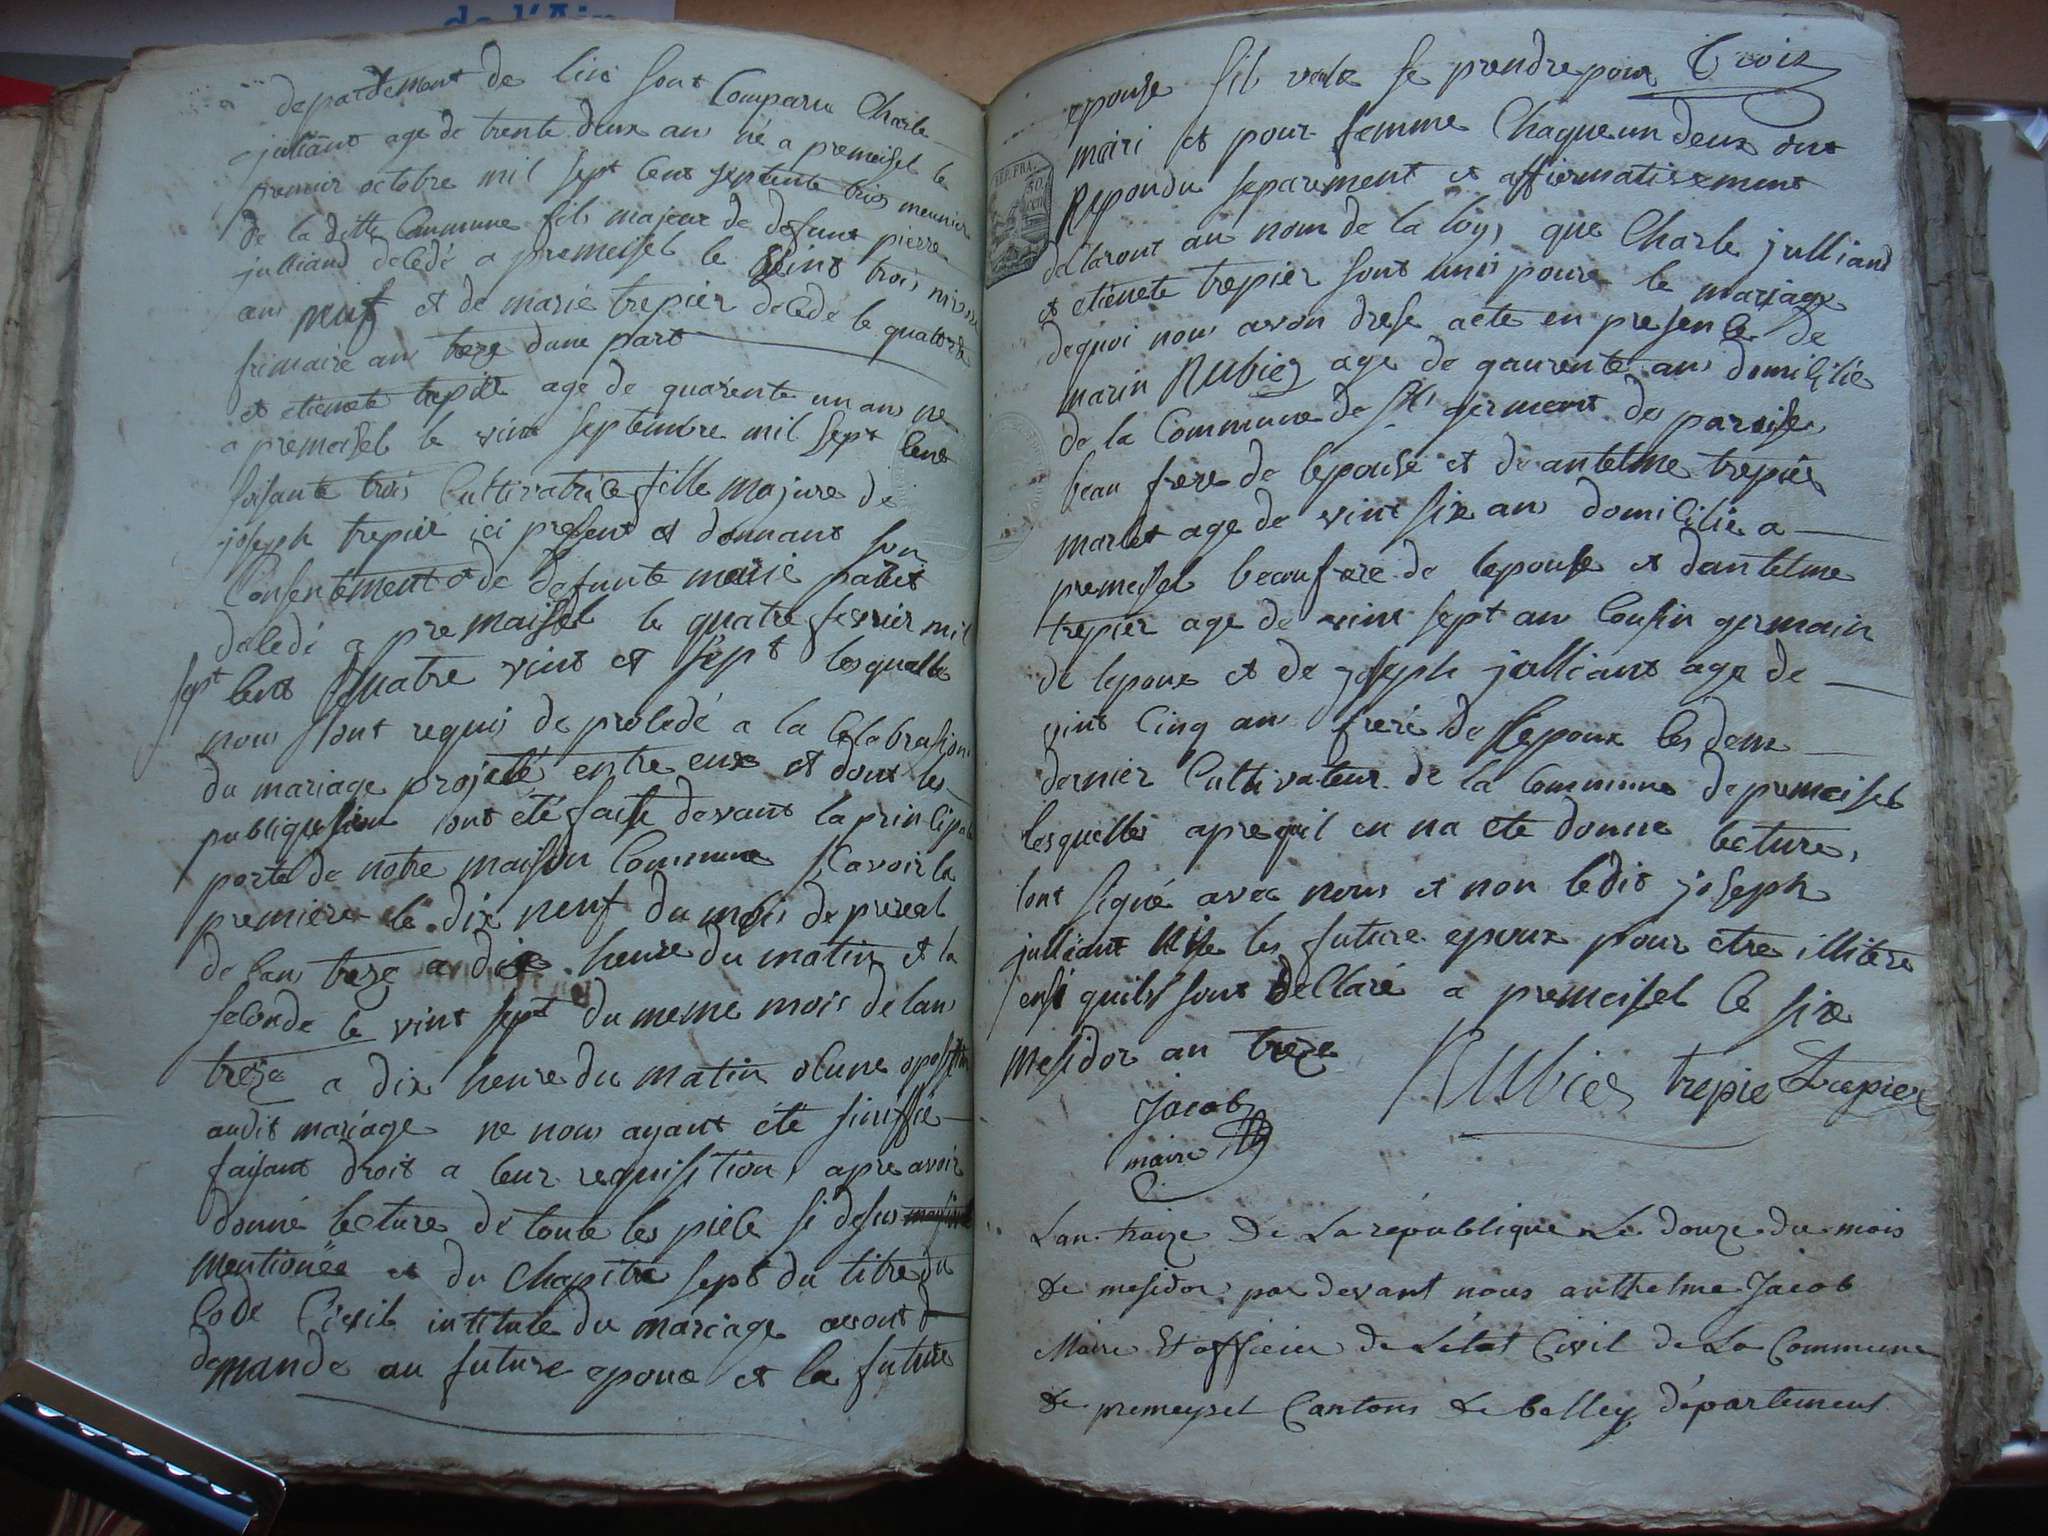 de l'Ain
departement de lin sont Comparu Charle
julliant age de trente deux ans né a premeisel le
premier octobre mil sept cent septente trois meunier
de la ditte Commune fils majeur de defunt pierre
julliand decedé a premeisel le vint trois nivose
an neuf et de marie trepier decede le quatorze
frimaire an treze dune part
et etienete trepier age de quarente un ans ne
a premeisel le vint septembre mil sept cent
soisante trois Cultivatrice fille majure de
joseph trepier ici present et donnant son
Consentement et de defunte marie
decedé a premaisel le quatre fevrier mil
sept cent quatre vint et sept lesquelle
nous sont requis de procedé a la Celebrasion
du mariage projetté entre eux et dont les
publiquesion ont eté faite devant la principale
porte de notre maison Commune scavoir la
premiere le dix neuf du mois de prereal
de lans treze a dix heure du matin et la
seconde le vint sept du meme mois de lans
treze a dix heure du matin ocune oposition
audit mariage ne nous ayant été sinifié
faisant droit a leur requisition, apre avoir
donné lecture de toute les pièce si desus
mentionée et du Chapitre sept du titre du
Code Civil intitule du mariage avont
demande au future epoux et la future
epouse sil vele se prendre pour Trois
mari et pour femme Chaque un deux ont
Repondu separement et affiermativement
declaront au nom de la loys que Charle julliand
et etienete trepier sont unis pour le mariage
dequoi nous avon drese acte en presence de
marin Rubiez age de quarente ans domicilié
de la Commune de st germent de paroise
beau frere de lepouse et de antelme trepier
marlet age de vint six ans domicilié a
premeisel beaufrere de lepouse et dantelme
trepier age de vint sept an Cousin germain
de lepoux et de joseph julliant age de
vint Cinq an frere de lepoux les deux
dernier Cultivateur de la Commune de premeisel
lesquelles apre quil en na ete donne lecture,
sont signé avec nous et non ledit joseph
julliant ni les future epoux pour etre illitere
ensi quils sont declaré a premeisel le six
mesidor an treze
Rubiez trepie trepier
Jacob
maire
REP. FRA.
50
CEN
Lan traize de La république Le douze du mois
de mesidor par devant nous anthelme Jacob
Maire Et officier de Létat Civil de La Commune
de premeysel Cantons de belley département